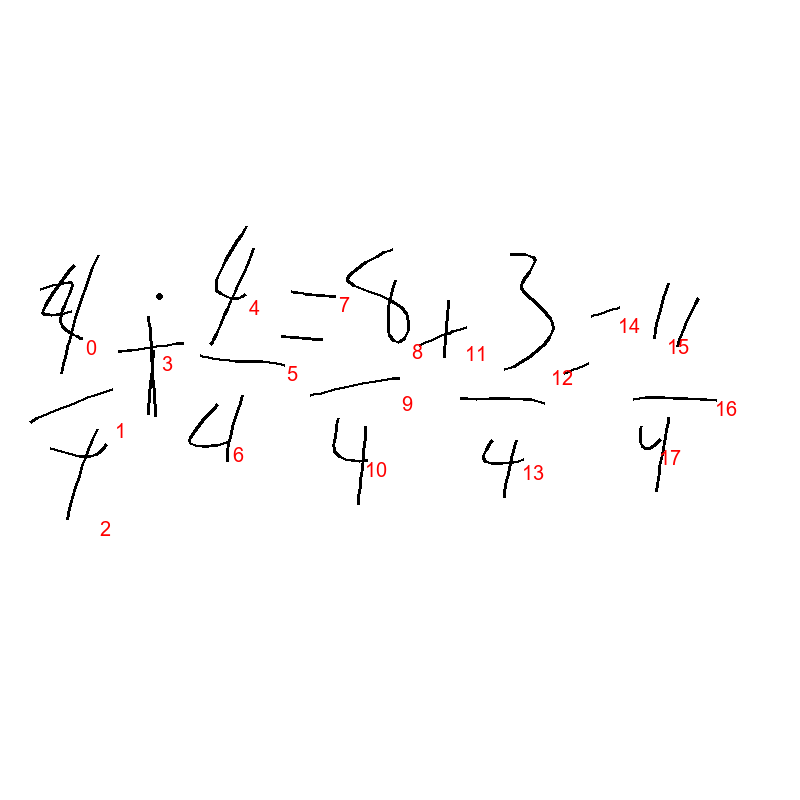 4/4 + 4/4 = 8/4 + 3/4 = 11/4
0 1 2 3 4 5 6 7 8 9 10 11 12 13 14 15 16 17